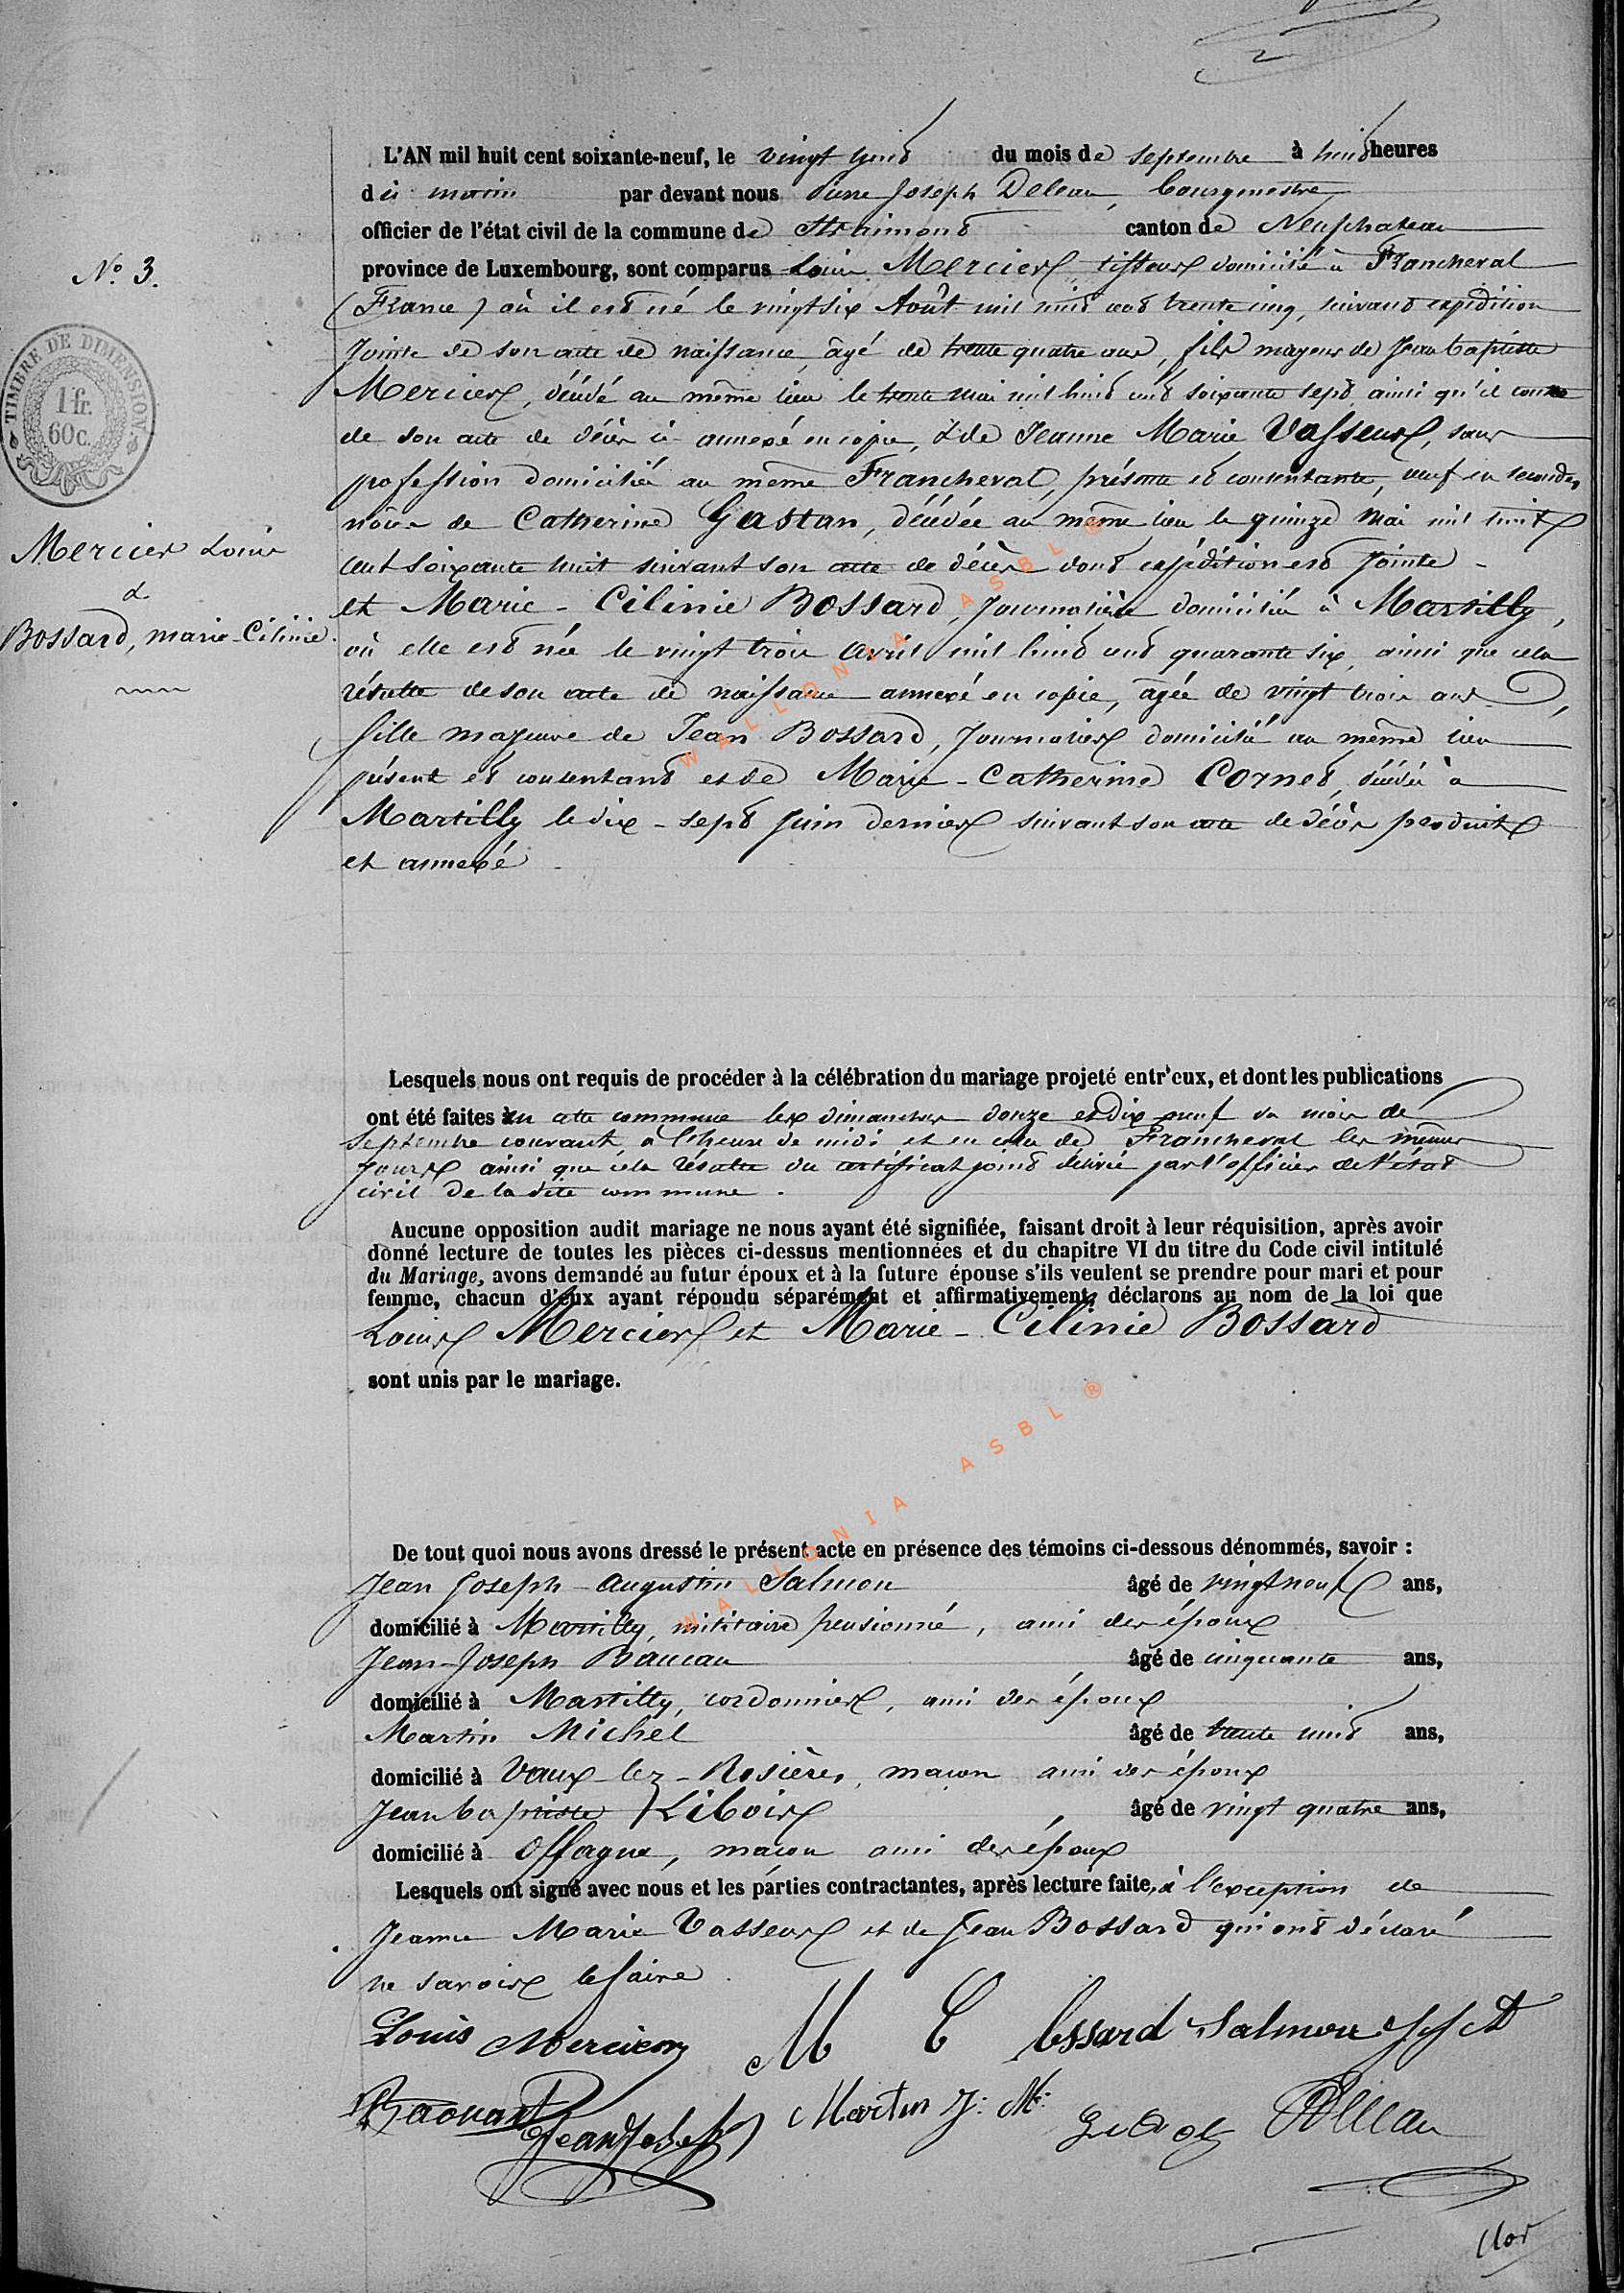 L'AN mil huit cent soixante-neuf, le vingt huit du mois de septembre à huit heures
du matin par devant nous Pierre Joseph Deleau, bourgmestre
officier de l'état civil de la commune de Straimont canton de Neufchateau
province de Luxembourg, sont comparus Louis Mercier tisseur domicilié à Francheval
(France) où il est né le vingt six Août mil huit cent trente cinq, suivant expédition
jointe de son acte de naissance, âgé de trente quatre ans, fils majeur de Jean baptiste
Mercier, décédé au même lieu le trente mai mil huit cent soixante sept ainsi qu'il conste
de son acte de décès ci-annexé en copie, & de Jeanne Marie Vasseur, sans
profession domiciliée au même Francheval, présente et consentante, veuf en secondes
nôces de Catherine Gastan, décédée au même lieu le quinze Mai mil huit
cent soixante huit suivant son acte de décès dont expédition est jointe
et Marie-Célinie Bossard, journalière domiciliée à Martilly,
où elle est née le vingt trois avril mil huit cent quarante six, ainsi que cela
résulte de son acte de naissance annexé en copie, âgée de vingt trois ans,
fille majeure de Jean Bossard, journalier domicilié au même lieu
présent et consentant et de Marie-Catherine Cornet, décédée à
Martilly le dix-sept juin dernier suivant son acte de décès produit
et annexé
N° 3.
TIMBRE DE DIMENSION
1 fr.
60 c.
Mercier Louis
&
Bossard, marie-Célinie
Lesquels nous ont requis de procéder à la célébration du mariage projeté entr'eux, et dont les publications
ont été faites en cette commune les dimanches douze et dix neuf du mois de
septembre courant à l'heure de midi et en celle de Francheval les mêmes
jours ainsi que cela résulte du certificat joint délivré par l'officier de l'état
civil de la dite commune.
Aucune opposition audit mariage ne nous ayant été signifiée, faisant droit à leur réquisition, après avoir
donné lecture de toutes les pièces ci-dessus mentionnées et du chapitre VI du titre du Code civil intitulé
du Mariage, avons demandé au futur époux et à la future épouse s'ils veulent se prendre pour mari et pour
femme, chacun d'eux ayant répondu séparément et affirmativement, déclarons au nom de la loi que
Louis Mercier et Marie-Célinie Bossard
sont unis par le mariage.
De tout quoi nous avons dressé le présent acte en présence des témoins ci-dessous dénommés, savoir :
Jean Joseph Augustin Salmon âgé de vingt neuf ans,
domicilié à Martilly, militaire pensionné, ami des époux
Jean-Joseph âgé de cinquante ans,
domicilié à Martilly, cordonnier, ami des époux
Martin Michel âgé de trente huit ans,
domicilié à Vaux-lez-Rosières, maçon ami des époux
Jean baptiste Liboix âgé de vingt quatre ans,
domicilié à Offagne, maçon ami des époux
Lesquels ont signé avec nous et les parties contractantes, après lecture faite, à l'exception de
Jeanne Marie Vasseur et de Jean Bossard qui ont déclaré
ne savoir le faire.
Louis Mercier M C bossard Salmon
Jean Joseph Martin J: M: Deleau
WALLONIA ASBL ®
WALLONIA ASBL ®